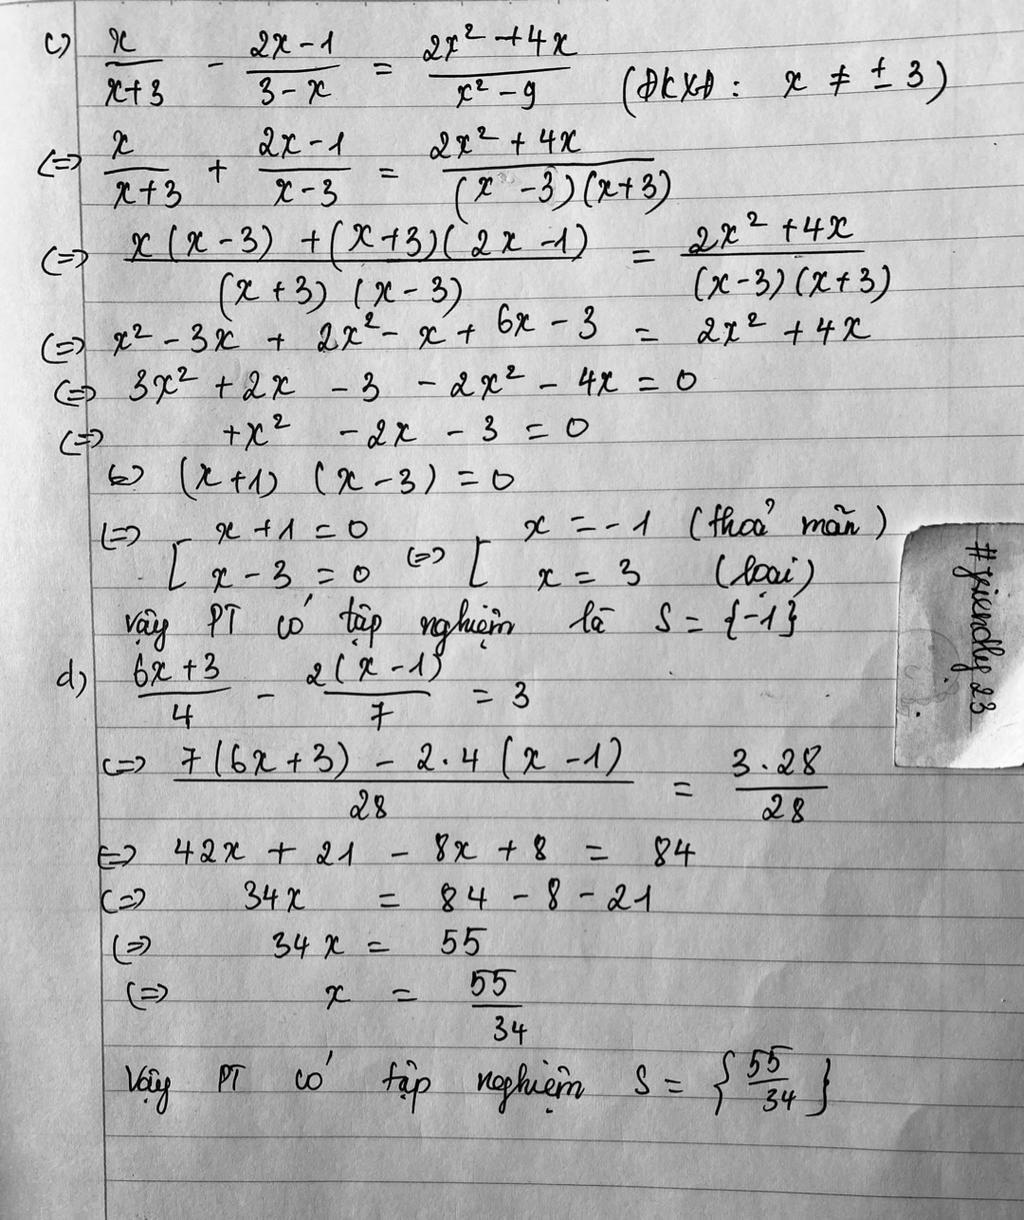 c) x/(x+3) - (2x-1)/(3-x) = (2x² + 4x)/(x² - 9) (ĐKXĐ : x ≠ ± 3)
(=) x/(x+3) + (2x-1)/(x-3) = (2x² + 4x)/((x -3)(x+3))
(=) (x(x-3) + (x+3)(2x-1))/((x+3)(x-3)) = (2x² + 4x)/((x-3)(x+3))
(=) x² - 3x + 2x² - x + 6x - 3 = 2x² + 4x
(=) 3x² + 2x - 3 - 2x² - 4x = 0
(=) +x² - 2x - 3 = 0
(=) (x+1) (x-3) = 0
(=) [ x+1 = 0 (=) [ x = -1 (thoả mãn)
x - 3 = 0 x = 3 (loại)
Vậy PT có tập nghiệm là S = {-1}
d) (6x+3)/4 - 2(x-1)/7 = 3
(=) (7(6x+3) - 2.4(x-1))/28 = 3.28/28
(=) 42x + 21 - 8x + 8 = 84
(=) 34x = 84 - 8 - 21
(=) 34x = 55
(=) x = 55/34
Vậy PT có tập nghiệm S = {55/34}